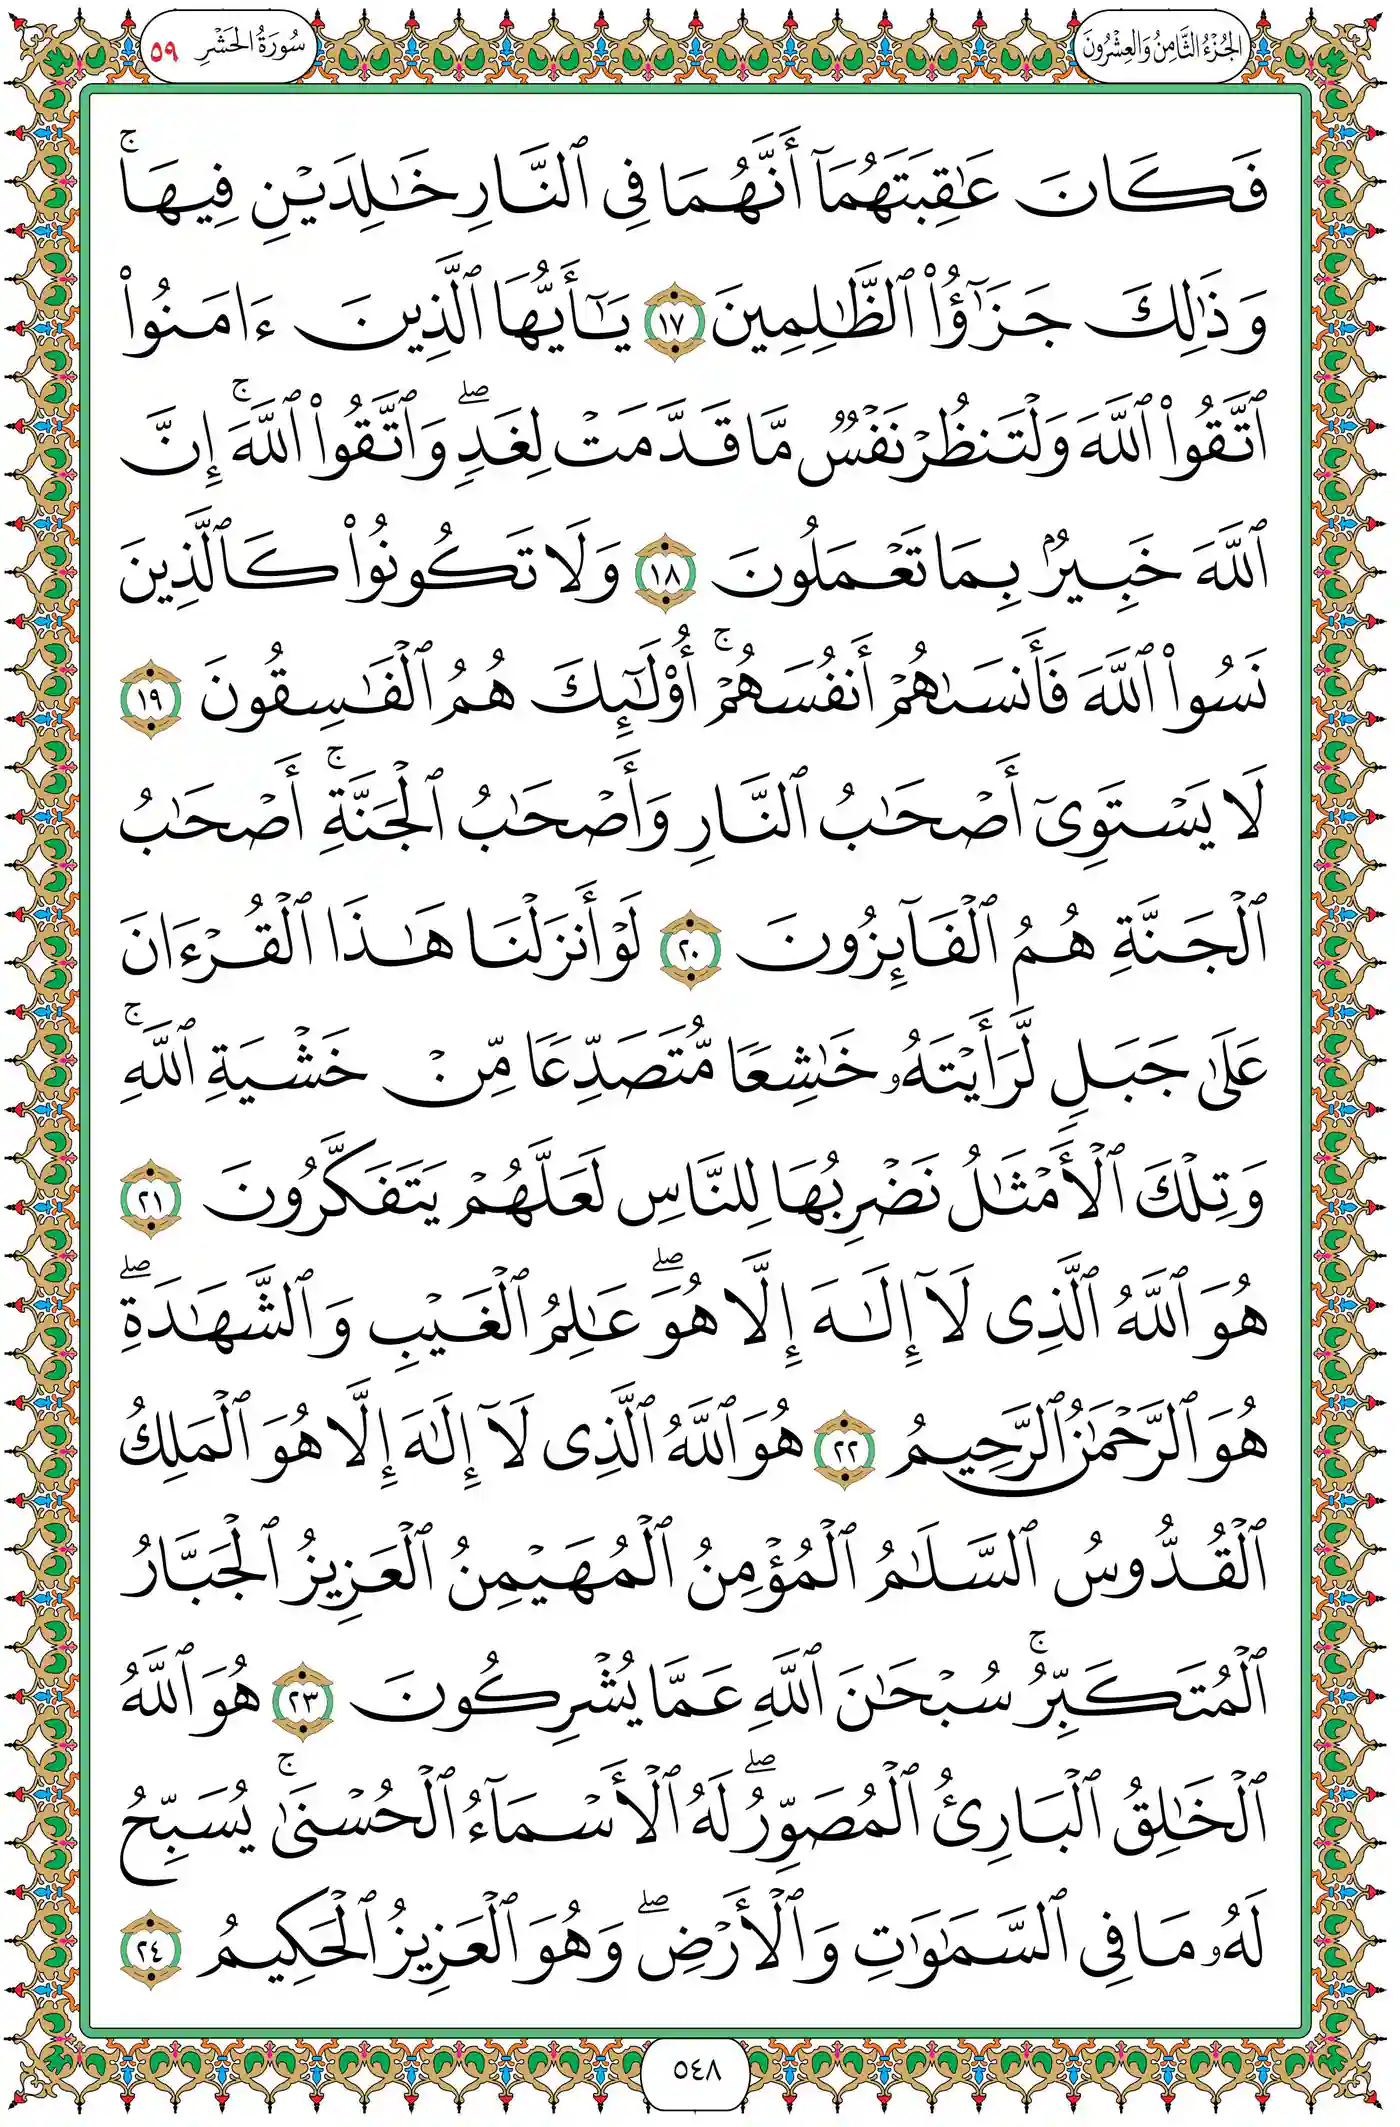 الجُزْءُ الثَّامِنُ وَالعِشْرُونَ
سُورَةُ الحَشْرِ ٥٩
فَكَانَ عَٰقِبَتَهُمَآ أَنَّهُمَا فِي ٱلنَّارِ خَٰلِدَيْنِ فِيهَاۚ
وَذَٰلِكَ جَزَٰٓؤُاْ ٱلظَّٰلِمِينَ ١٧ يَٰٓأَيُّهَا ٱلَّذِينَ ءَامَنُواْ
ٱتَّقُواْ ٱللَّهَ وَلْتَنظُرْ نَفْسٞ مَّا قَدَّمَتْ لِغَدٖۖ وَٱتَّقُواْ ٱللَّهَۚ إِنَّ
ٱللَّهَ خَبِيرُۢ بِمَا تَعْمَلُونَ ١٨ وَلَا تَكُونُواْ كَٱلَّذِينَ
نَسُواْ ٱللَّهَ فَأَنسَىٰهُمْ أَنفُسَهُمْۚ أُوْلَٰٓئِكَ هُمُ ٱلْفَٰسِقُونَ ١٩
لَا يَسْتَوِيٓ أَصْحَٰبُ ٱلنَّارِ وَأَصْحَٰبُ ٱلْجَنَّةِۚ أَصْحَٰبُ
ٱلْجَنَّةِ هُمُ ٱلْفَآئِزُونَ ٢٠ لَوْ أَنزَلْنَا هَٰذَا ٱلْقُرْءَانَ
عَلَىٰ جَبَلٖ لَّرَأَيْتَهُۥ خَٰشِعٗا مُّتَصَدِّعٗا مِّنْ خَشْيَةِ ٱللَّهِۚ
وَتِلْكَ ٱلْأَمْثَٰلُ نَضْرِبُهَا لِلنَّاسِ لَعَلَّهُمْ يَتَفَكَّرُونَ ٢١
هُوَ ٱللَّهُ ٱلَّذِي لَآ إِلَٰهَ إِلَّا هُوَۖ عَٰلِمُ ٱلْغَيْبِ وَٱلشَّهَٰدَةِۖ
هُوَ ٱلرَّحْمَٰنُ ٱلرَّحِيمُ ٢٢ هُوَ ٱللَّهُ ٱلَّذِي لَآ إِلَٰهَ إِلَّا هُوَ ٱلْمَلِكُ
ٱلْقُدُّوسُ ٱلسَّلَٰمُ ٱلْمُؤْمِنُ ٱلْمُهَيْمِنُ ٱلْعَزِيزُ ٱلْجَبَّارُ
ٱلْمُتَكَبِّرُۚ سُبْحَٰنَ ٱللَّهِ عَمَّا يُشْرِكُونَ ٢٣ هُوَ ٱللَّهُ
ٱلْخَٰلِقُ ٱلْبَارِئُ ٱلْمُصَوِّرُۖ لَهُ ٱلْأَسْمَآءُ ٱلْحُسْنَىٰۚ يُسَبِّحُ
لَهُۥ مَا فِي ٱلسَّمَٰوَٰتِ وَٱلْأَرْضِۖ وَهُوَ ٱلْعَزِيزُ ٱلْحَكِيمُ ٢٤
٥٤٨